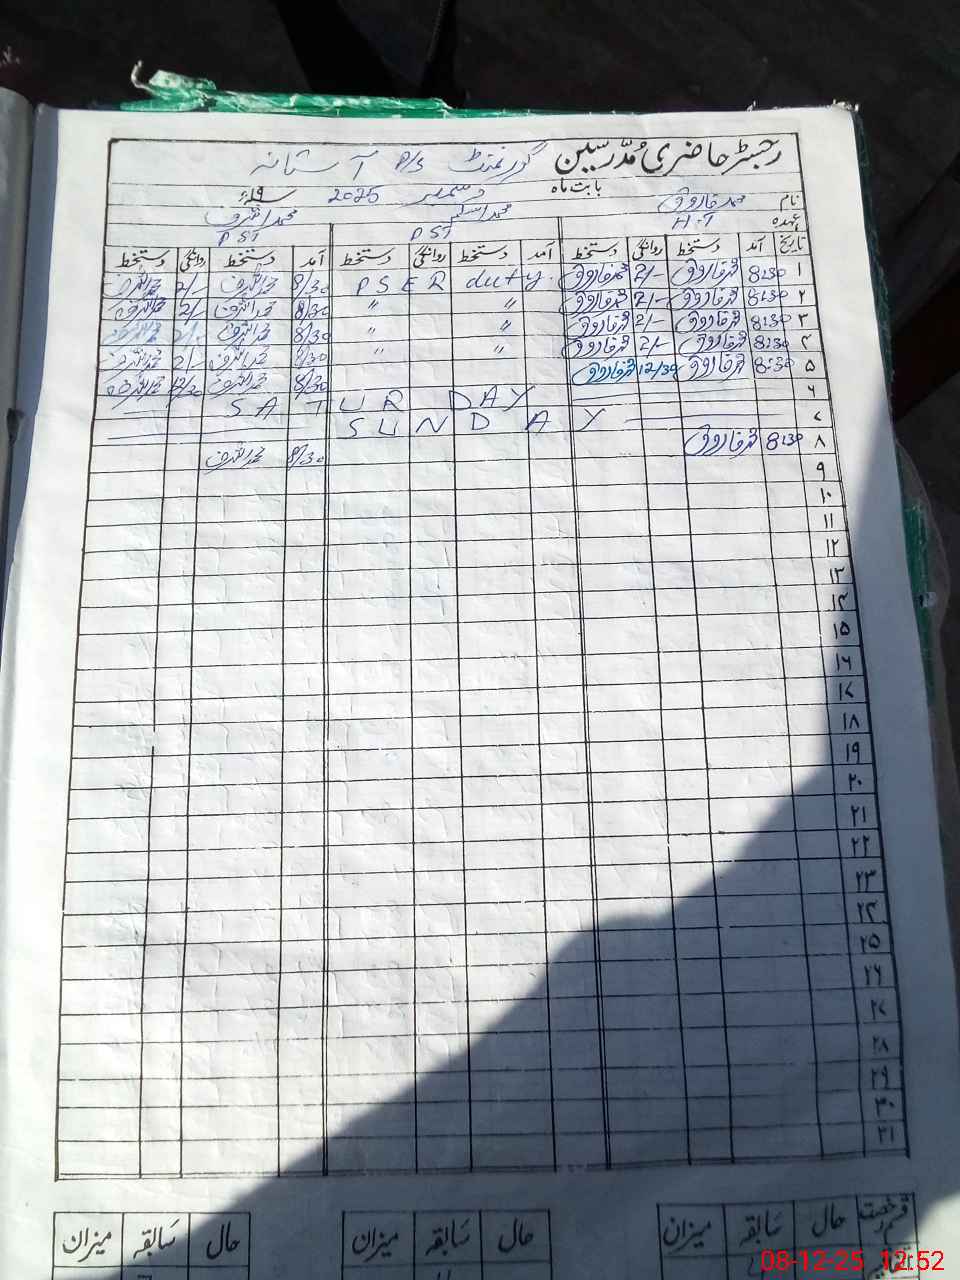 رجسٹر حاضری مُدّرسین گورنمنٹ P/S آستانہ
بابت ماہ دسمبر 2025 ۱۹ء
نام محمد فاروق محمد اشرف
عہدہ H.T PST PST
تاریخ آمد دستخط روانگی دستخط آمد دستخط روانگی دستخط آمد دستخط روانگی دستخط
۱ 8:30 محمد فاروق 2/- محمد فاروق PSER duty. 8/30 محمد اشرف 2/- محمد اشرف
۲ 8:30 محمد فاروق 2/- محمد فاروق " " 8/30 محمد اشرف 2/- محمد اشرف
۳ 8:30 محمد فاروق 2/- محمد فاروق " " 8/30 محمد اشرف 2/- محمد اشرف
۴ 8:30 محمد فاروق 2/- محمد فاروق " " 8/30 محمد اشرف 2/- محمد اشرف
۵ 8:30 محمد فاروق 12/30 محمد فاروق 8/30 محمد اشرف 12/30 محمد اشرف
۶ SATURDAY
۷ SUNDAY
۸ 8:30 محمد فاروق 8/30 محمد اشرف
۹
۱۰
۱۱
۱۲
۱۳
۱۴
۱۵
۱۶
۱۷
۱۸
۱۹
۲۰
۲۱
۲۲
۲۳
۲۴
۲۵
۲۶
۲۷
۲۸
۲۹
۳۰
۳۱
قسم رخصت حال سَابقہ میزان حال سَابقہ میزان حال سَابقہ میزان
08-12-25 12:52